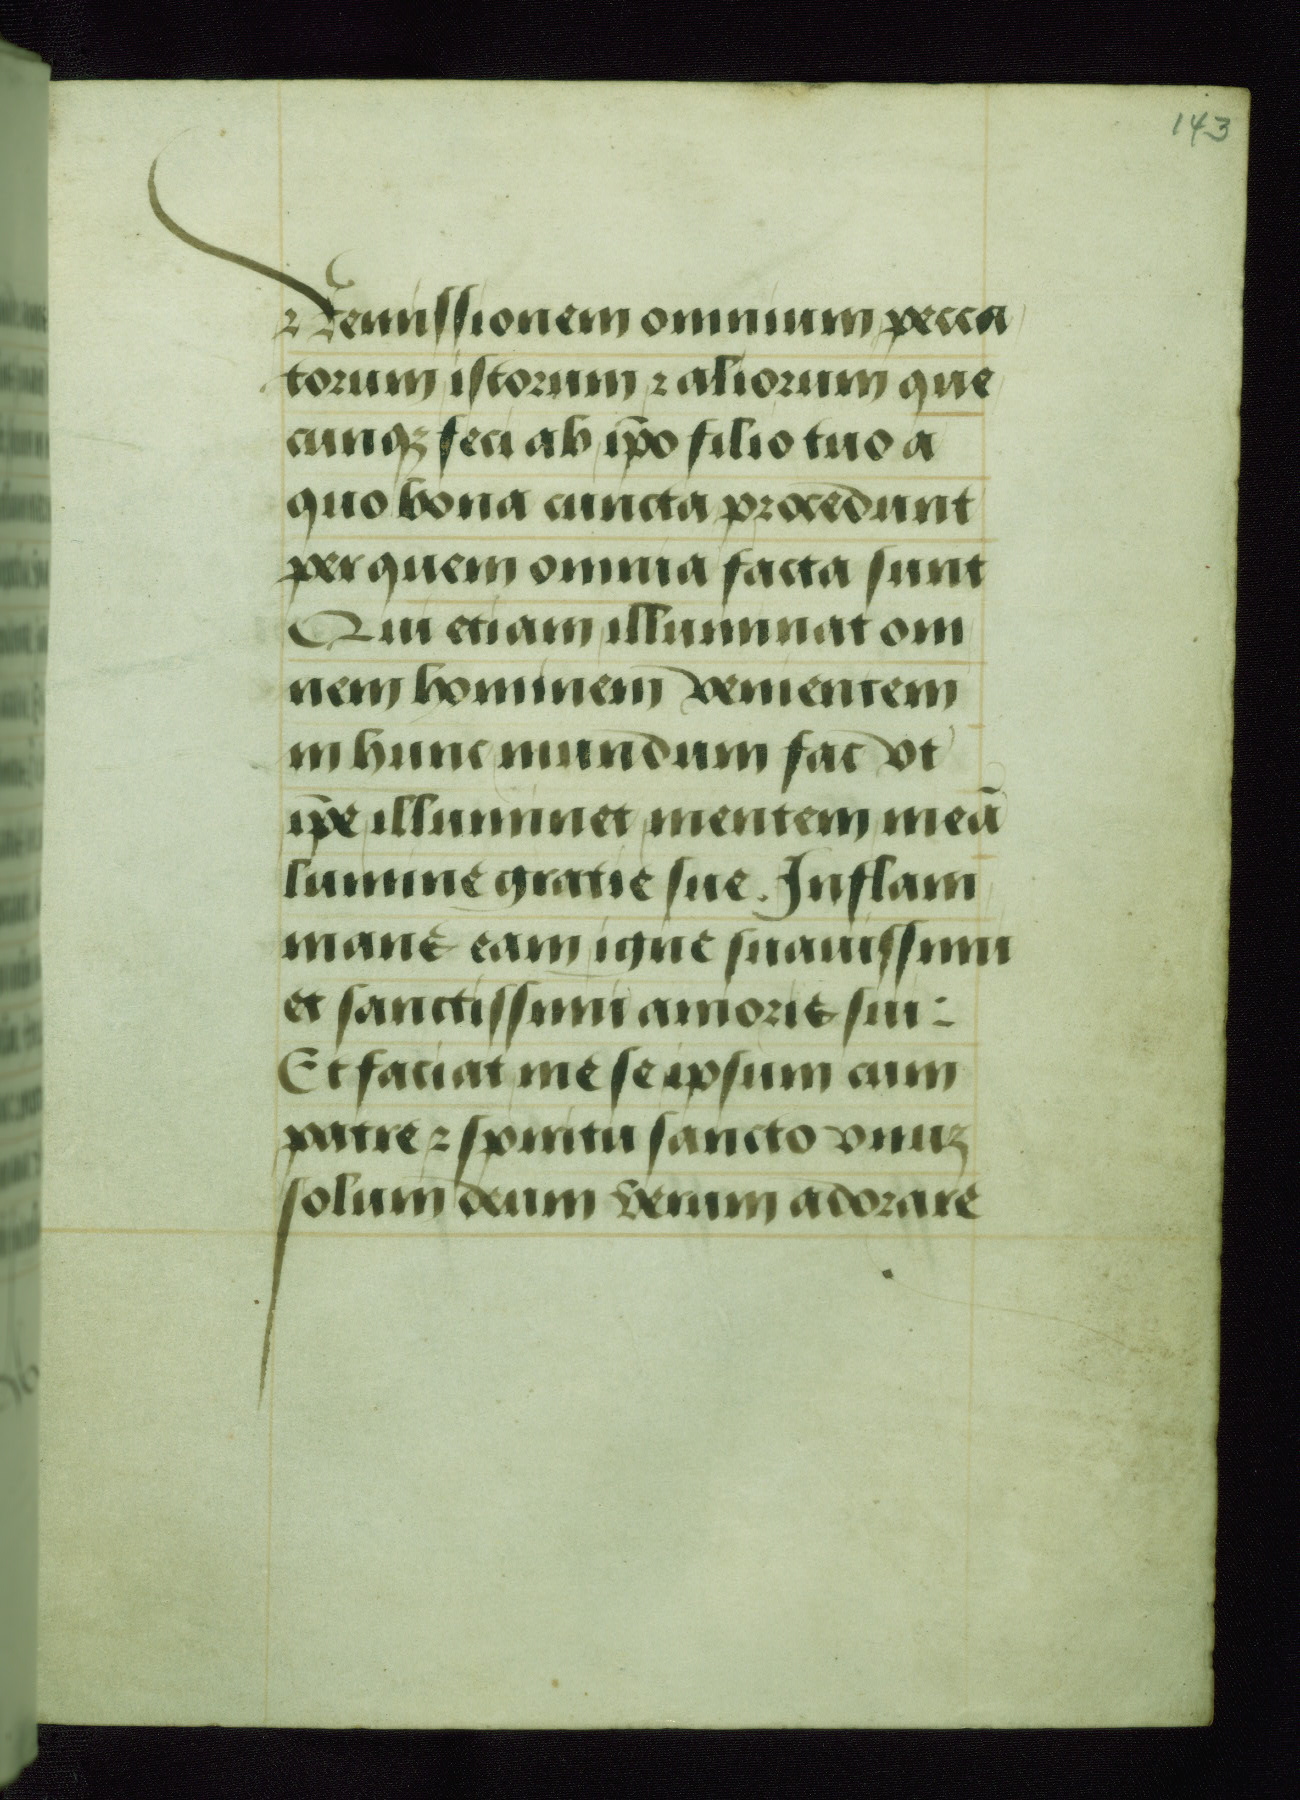 143
⁊ Remissionem omnium pecca
torum istorum ⁊ aliorum que
cunqꝫ feci ab ip̄o filio tuo a
quo bona cuncta procedunt
per quem omnia facta sunt
Qui etiam illuminat om
nem hominem venientem
in hunc mundum fac vt
ip̄e illuminet mentem meā
lumine gratie sue. Inflam
mans eam igne suauissimi
et sanctissimi amoris sui :
Et faciat me se ipsum cum
patre ⁊ spiritu sancto vnuꝫ
solum deum verum adorare